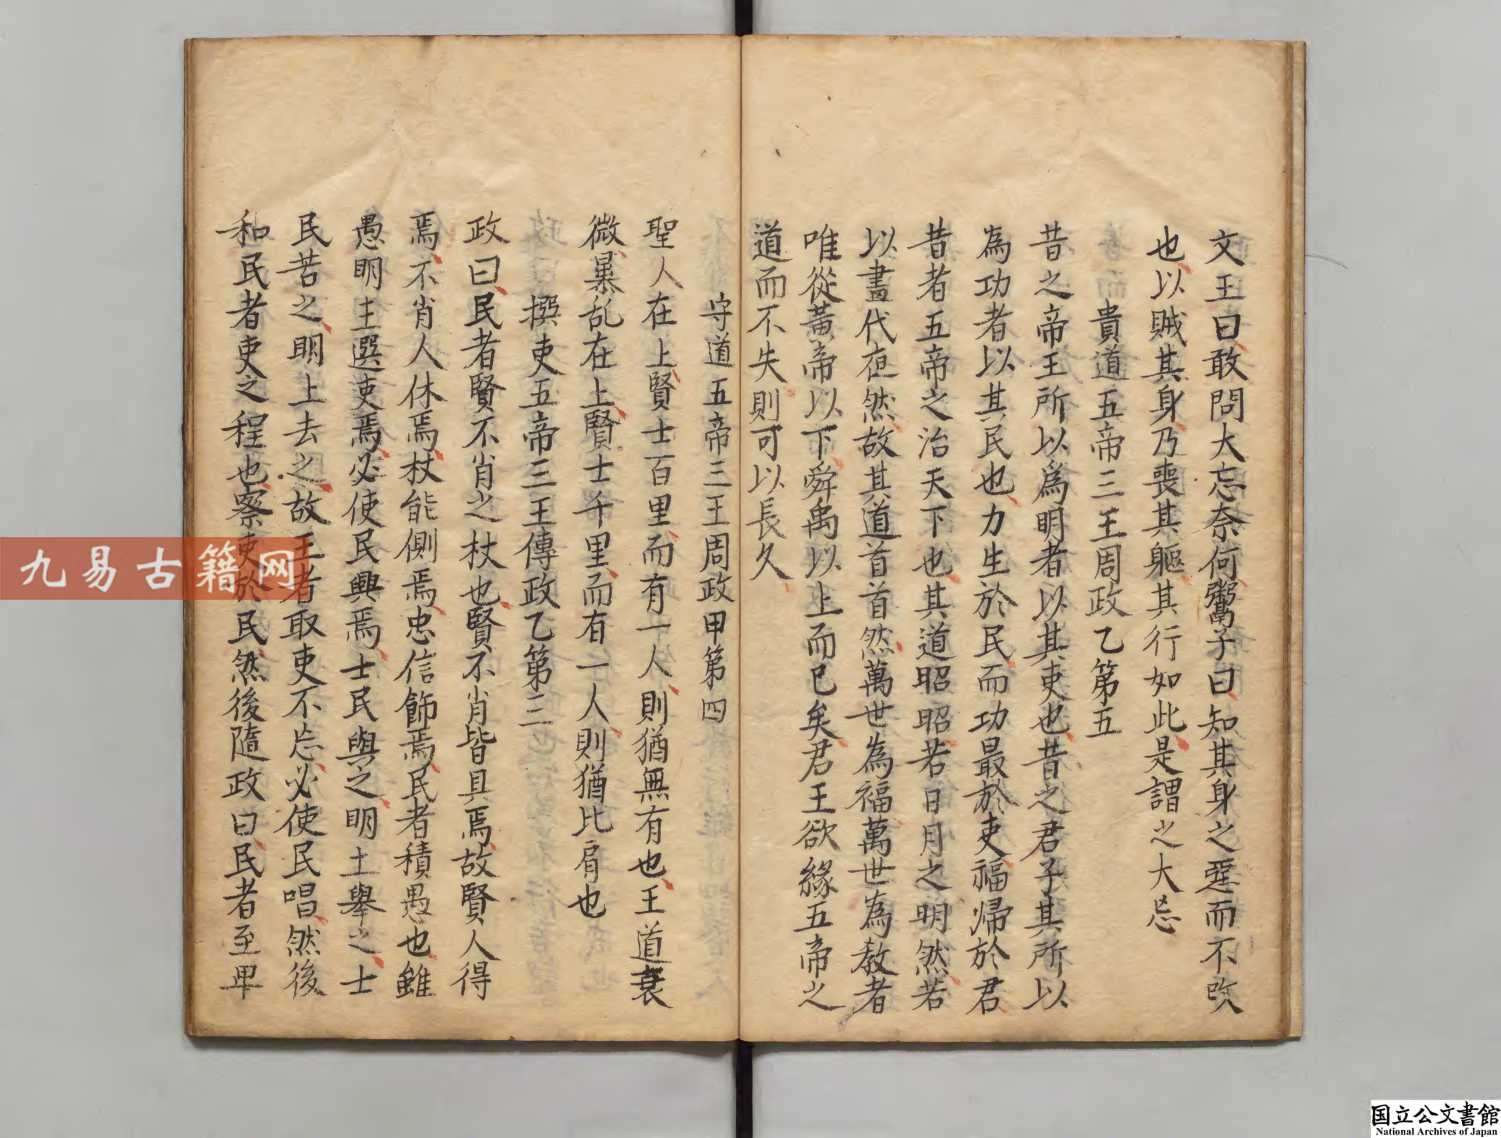 文王曰敢問大忘奈何鬻子曰知其身之惡而不改
也以賊其身乃喪其軀其行如此是謂之大忘
貴道五帝三王周政乙第五
昔之帝王所以為明者以其吏也昔之君子其所以
為功者以其民也力生於民而功最於吏福歸於君
昔者五帝之治天下也其道昭昭若日月之明然若
以晝代夜然故其道首首然萬世為福萬世為教者
唯從黃帝以下舜禹以上而已矣君王欲緣五帝之
道而不失則可以長久
守道五帝三王周政甲第四
聖人在上賢士百里而有一人則猶無有也王道衰
微暴乱在上賢士千里而有一人則猶比肩也
撰吏五帝三王傳政乙第三
政曰民者賢不肖之杖也賢不肖皆具焉故賢人得
焉不肖人休焉杖能側焉忠信飾焉民者積愚也雖
愚明主選吏焉必使民興焉士民與之明上舉之士
民苦之明上去之故王者取吏不忘必使民唱然後
和民者吏之程也察吏於民然後隨政曰民者至卑
九易古籍网
国立公文書館
National Archives of Japan